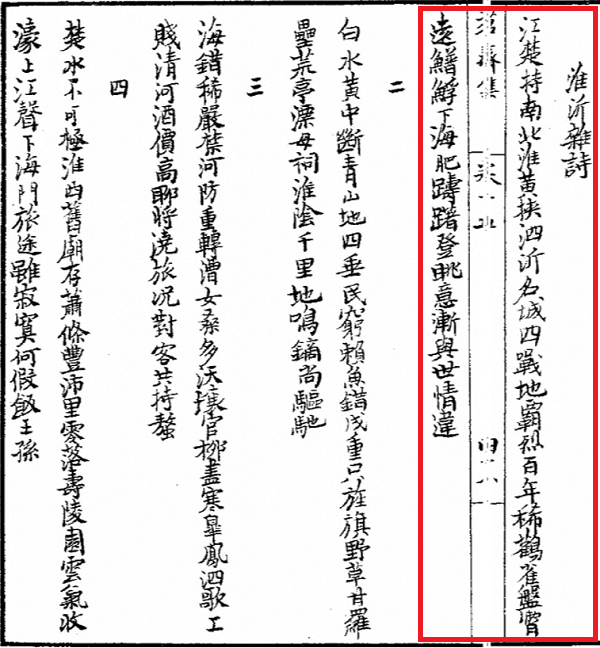 淮沂雜詩
江楚持南北淮黃狹泗沂名城四戰地霸烈百年稀鸛雀盤霄
集
遠鱔下海肥躊躇登眺意漸與世情違
二
白水黃中斷青山地四垂民窮賴魚錯戍重只旌旗野草甘羅
壘荒亭漂母祠淮陰千里地鳴鏑尚驅馳
三
海錯稀嚴禁河防重轉漕女桑多沃壤官柳盡寒皋鳳泗歌工
賤清河酒價高聊將澆旅况對客共持螯
四
楚水不可極淮西舊廟存蕭條豐沛里零落壽陵園雲氣收
濠上江聲下海門旅途雖寂寞何假飯王孫